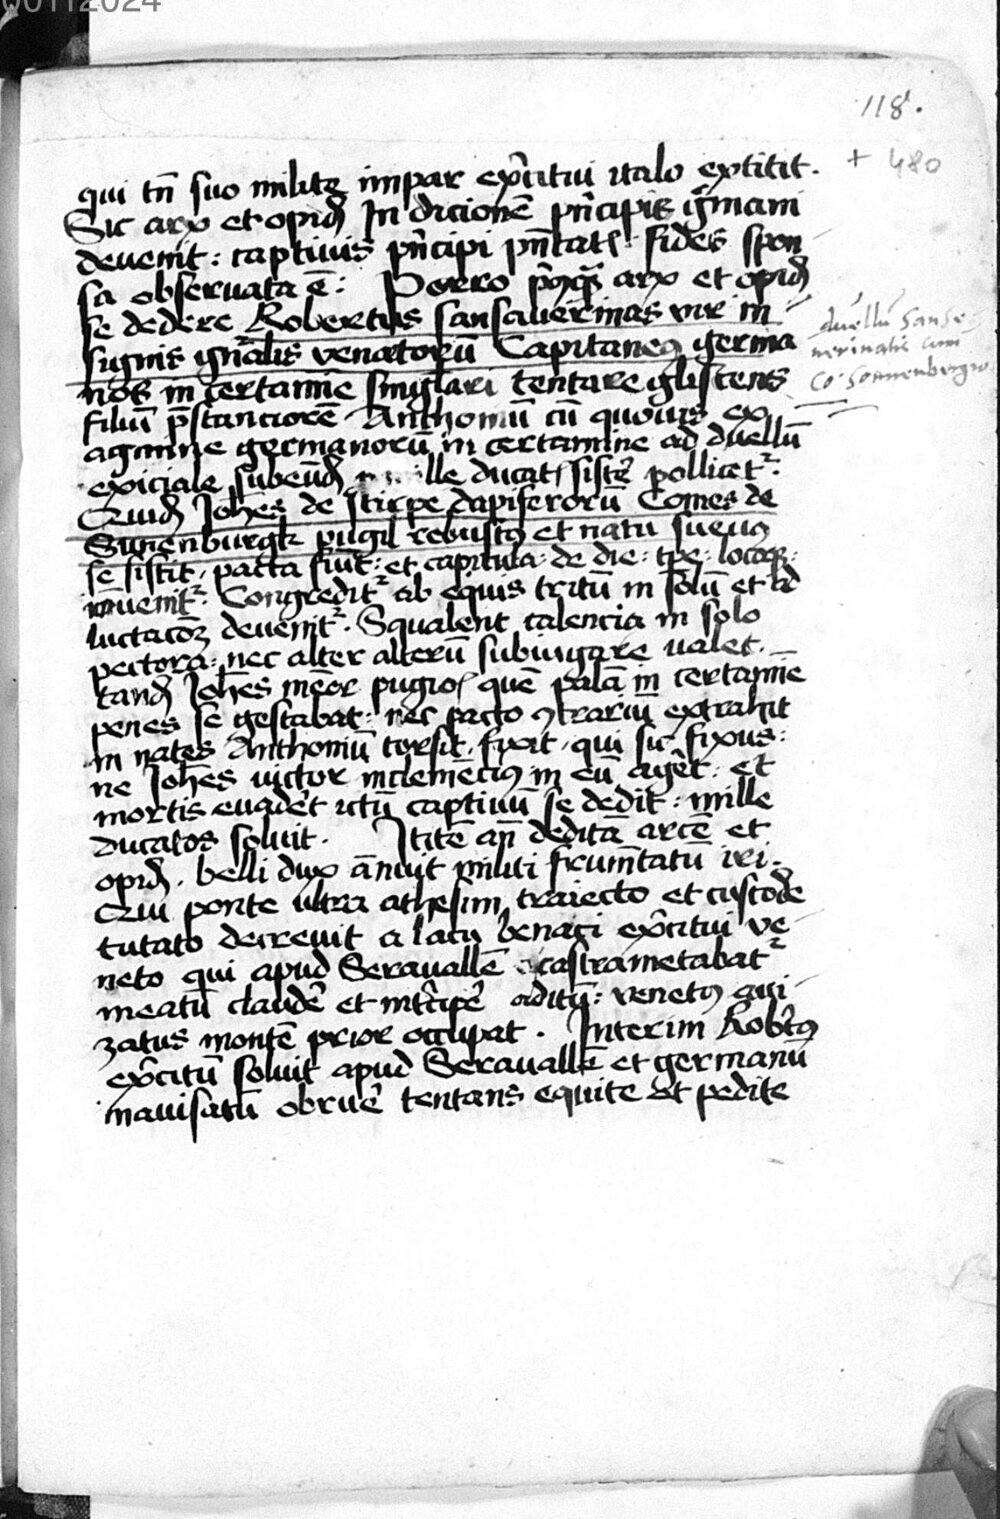 00112024
118.
+ 480
qui tn̄ suo militz impar exc̄itui italo extitit.
Sic arx et opid̄ In dicionē pn̄cipis gm̄ani
devenit: captivis pn̄cipi pn̄tatꝭ. fides spon
sa observata ē: Porro arx et opid̄
se dedere Robertus sansaverinas vir in
signis gn̄alis venetorū Capitaneꝰ germa
nos in certamine singl̄ari tentare glistens
filiū p̄stanciorē Anthoniū cū quovis ex
agmine germanorū in certamine ad duellū
exiciale subeūd̄ mille ducatꝭ sistē pollicetᷣ.
Quid̄ Joh̄es de stirpe dapiferorū Comes de
Sunenburgk pugil robustꝰ et natu suevꝰ
se sistit, pacta fiūt: et capitula: de die: tp̄e: locoqꝫ:
invenitᷣ. Congreditᷣ ab equis tritū in solū et ad
luctacōꝫ devenitᷣ. Squalent talencia in solo
pectora: nec alter alterū subiugare valet.
tand̄ Joh̄es mēor pugioꝭ quē palā in certamīe
penes se gestabat: nec pacto ꝯtrariū extrahit
in nates Anthoniū torsit, fixit, qui sic fixus:
ne Joh̄es victor inclemēciꝰ in eū agēt: et
mortis evadēt ictū captivū se dedit: mille
ducatos solvit. Ititē an̄ deditā arcē et
opid̄. belli dux ānuit militi frumentatū iri.
Qui ponte ultra athesim traiecto et custode
tutato decrevit a lacu benaci exc̄itui ve
neto qui apud Seravallē castrametabatᷣ
meatū claudē et int̄cipē aditū: venetꝰ avi
zatus montē prior occupat. Interim Rob̄tꝰ
exc̄itū solvit apud Seravallē et germanū
inavisatū obruē tentans equite et pedite
duellū Sanse
verinatis cum
Co. Sonnenbergio